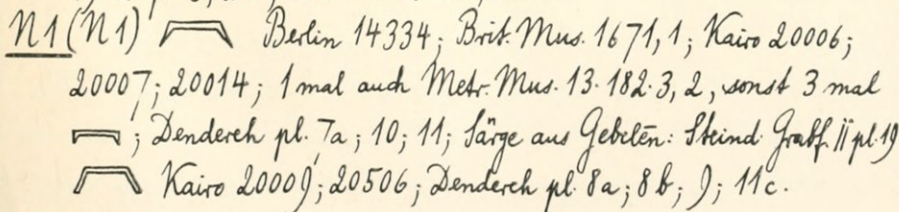 N1 (N1) 𓇯 Berlin 14334; Brit. Mus. 1671,1; Kairo 20006;
20007; 20014; 1 mal auch Metr. Mus. 13.182.3, 2, sonst 3 mal
𓇯; Dendereh pl. 7a; 10; 11; Särge aus Gebelēn: Steind. Grabf. II pl. 19
𓇯 Kairo 20009; 20506; Dendereh pl. 8a; 8b; 9; 11c.